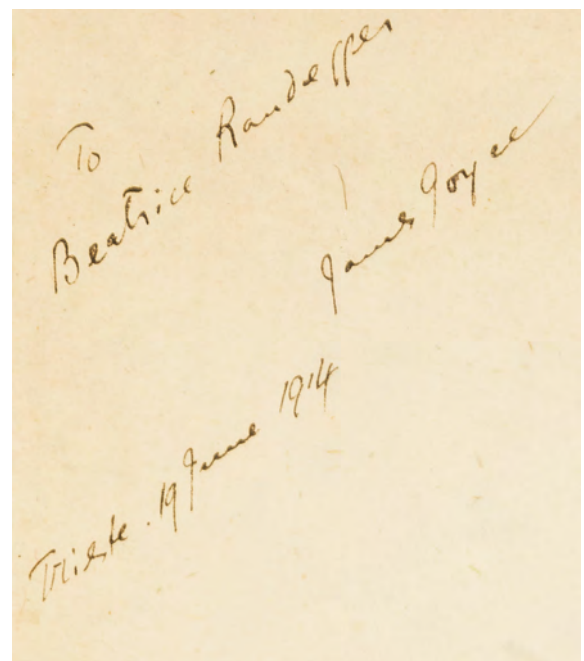 To
Beatrice Randegger
James Joyce
Trieste. 19 June 1914